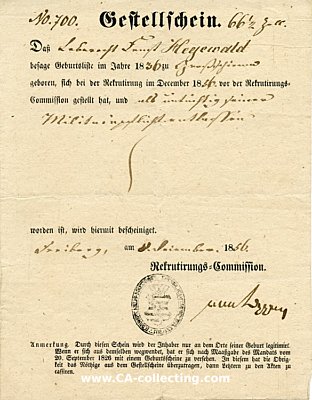 No. 700. Gestellschein. 66½ Z.
Daß Leberecht Ernst Hegewald
besage Geburtsliste im Jahre 1836 zu
geboren, sich bei der Rekrutirung im December 1856 vor der Rekrutirungs-
Commission gestellt hat, und als untüchtig seiner
Militairpflicht entlassen
worden ist, wird hiermit bescheiniget.
Freiberg, am December 1856.
Rekrutirungs-Commission.
Anmerkung. Durch diesen Schein wird der Inhaber nur an dem Orte seiner Geburt legitimirt.
Wenn er sich aus demselben wegwendet, hat er sich nach Maaßgabe des Mandats vom
20. September 1826 mit einem Geburtsscheine zu versehen. In diesen hat die Obrig-
keit das Nöthige aus dem Gestellscheine überzutragen, dann Letztern zu den Akten zu
cassiren.
www.CA-collecting.com